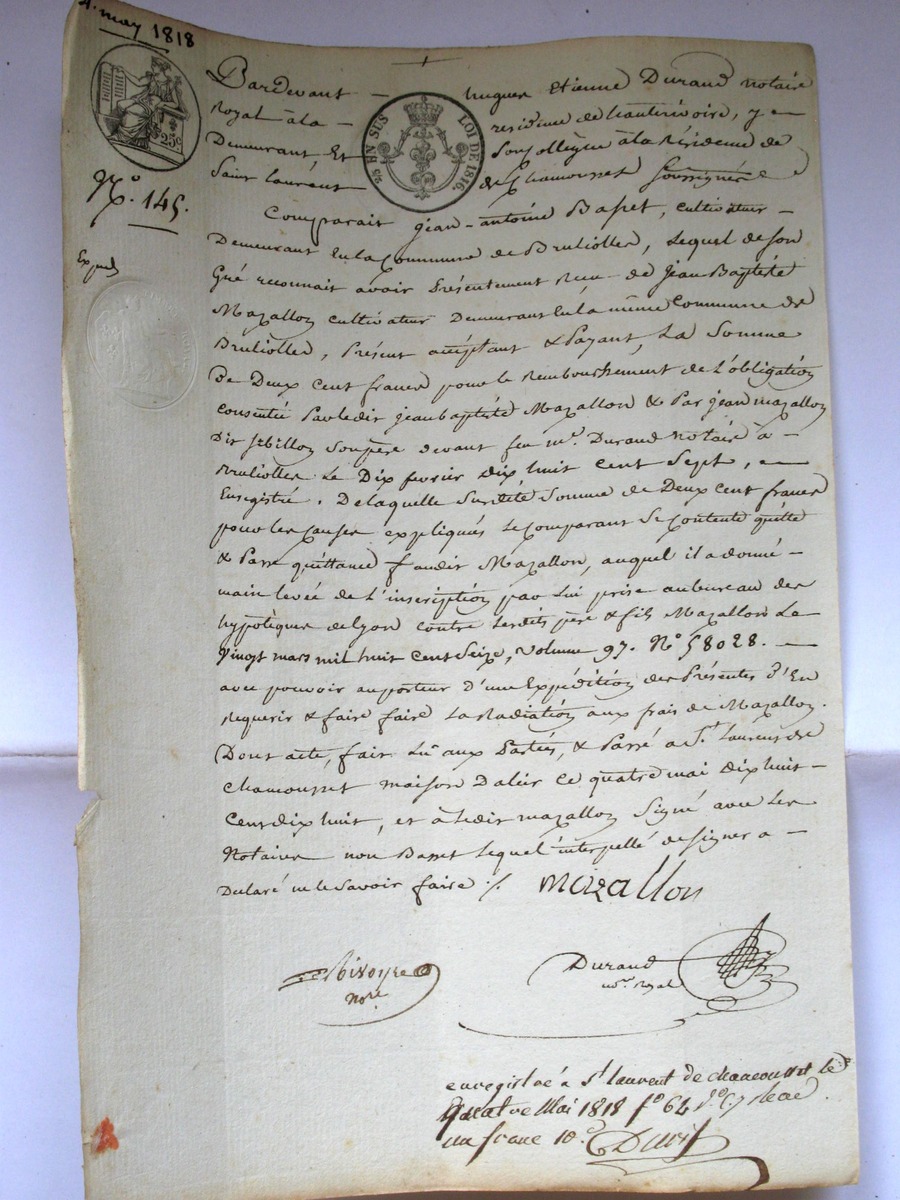 4. may 1818
25c
EN SUS LOI DE 1816.
N.º 145.
Pardevant hugues Etienne Durand notaire
Royal à la résidence de hauterivoire, y
Demeurant, Et Son Collègue à la Résidence de
Saint Laurent de Chamousset Soussignés
Comparait jean-antoine Basset, cultivateur
Demeurant En la Commune de Brulioller, Lequel de son
Gré reconnait avoir Présentement Recu de Jean Baptiste
Mazallon cultivateur Demeurant En la même Commune de
Brulioller, Présent acceptant & Payant, La Somme
De Deux cent francs pour le Remboursement de L'obligation
consentie Par ledit jean baptiste Mazallon & Par jean mazallon
Dit Son père devant feu m.e Durand notaire à
Brulioller Le Dix fevrier dix huit cent Sept,
Enregistré. De laquelle Susdite Somme de Deux cent francs
pour les causes expliqués le comparant Se Contente quitte
& Passe quittance audit Mazallon, auquel il a donné
main levée de L'inscription par Lui prise au bureau des
hypotèques de Lyon contre lesdits père & fils Mazallon Le
Vingt mars mil huit cent Seize, volume 97. Nº 58028.
avec pouvoir au porteur d'une Expédition des Présentes d'En
Requerir & faire faire La Radiation aux frais de Mazallon.
Dont acte, fait Lu aux Parties, & Passé a St. Laurent de
chamousset maison d'aleir ce quatre mai dix huit
Cent dix huit, et à Ledit mazallon Signé avec Les
Notaires non Basset Lequel interpellé de signer a
Déclaré ne le Savoir faire ./. mazallon
Rivoyre
nore
Durand
no.re Royal
enregistré à St laurent de chamousset le
quatre Mai 1818 fº 64
un franc 10.c